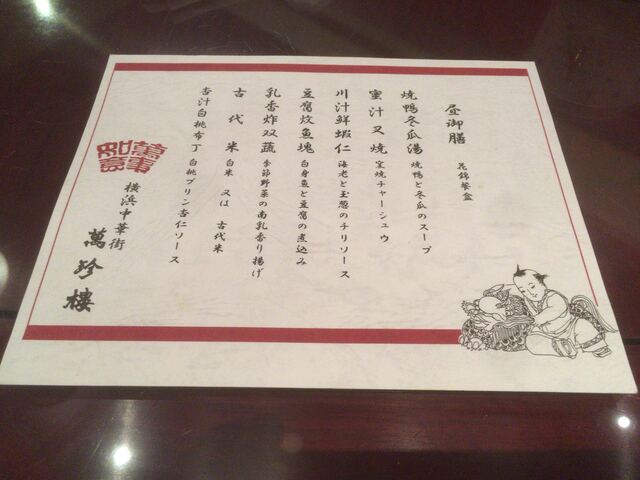 昼御膳 花錦餐盒
焼鴨冬瓜湯 焼鴨と冬瓜のスープ
蜜汁叉焼 窯焼チャーシュウ
川汁鮮蝦仁 海老と玉葱のチリソース
豆腐炆魚塊 白身魚と豆腐の煮込み
乳香炸双蔬 季節野菜の南乳香り揚げ
古代米 白米 又は 古代米
杏汁白桃布丁 白桃プリン杏仁ソース
萬事如意
横浜中華街
萬珍樓